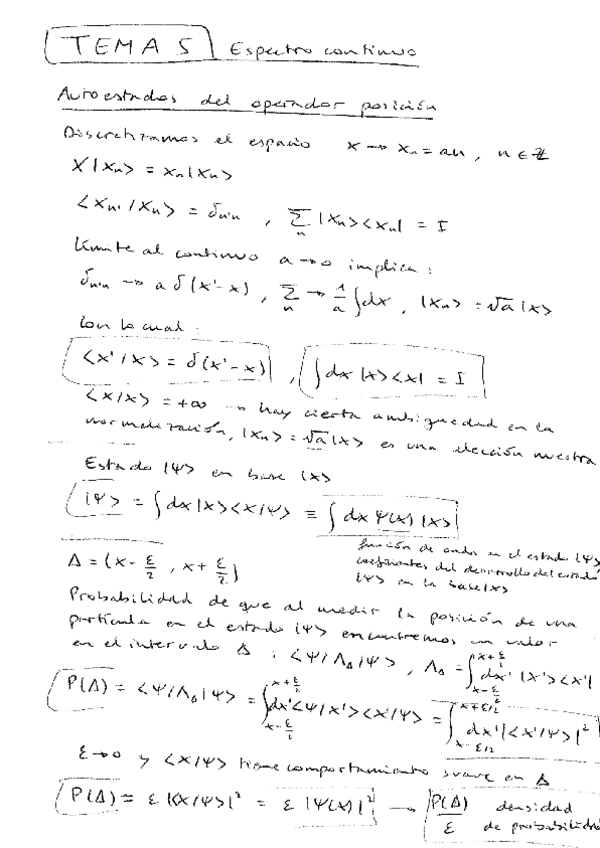 TEMA 5 Espectro continuo
Autoestados del operador posición
Discretizamos el espacio x → xₙ = an, n ∈ ℤ
X|xₙ> = xₙ|xₙ>
<xₙ'|xₙ> = δₙ'ₙ , Σₙ |xₙ><xₙ| = I
Límite al continuo a → 0 implica:
δₙ'ₙ → a δ(x'-x), Σₙ → 1/a ∫dx, |xₙ> = √a |x>
Con lo cual:
<x'|x> = δ(x'-x) , ∫dx |x><x| = I
<x|x> = +∞ → hay cierta ambigüedad en la
normalización, |xₙ> = √a|x> es una elección nuestra
Estado |Ψ> en base |x>
|Ψ> = ∫dx |x><x|Ψ> ≡ ∫dx Ψ(x) |x>
función de onda en el estado |Ψ>
coeficientes del desarrollo del estado
|Ψ> en la base |x>
Δ = (x - ε/2 , x + ε/2)
Probabilidad de que al medir la posición de una
partícula en el estado |Ψ> encontremos un valor
en el intervalo Δ : <Ψ|Λ_Δ|Ψ> , Λ_Δ = ∫_{x-ε/2}^{x+ε/2} dx' |x'><x'|
P(Δ) = <Ψ|Λ_Δ|Ψ> = ∫_{x-ε/2}^{x+ε/2} dx' <Ψ|x'><x'|Ψ> = ∫_{x-ε/2}^{x+ε/2} dx' |<x'|Ψ>|²
ε → 0 y <x|Ψ> tiene comportamiento suave en Δ
P(Δ) ≃ ε |<x|Ψ>|² = ε |Ψ(x)|² → P(Δ)/ε densidad
de probabilidad